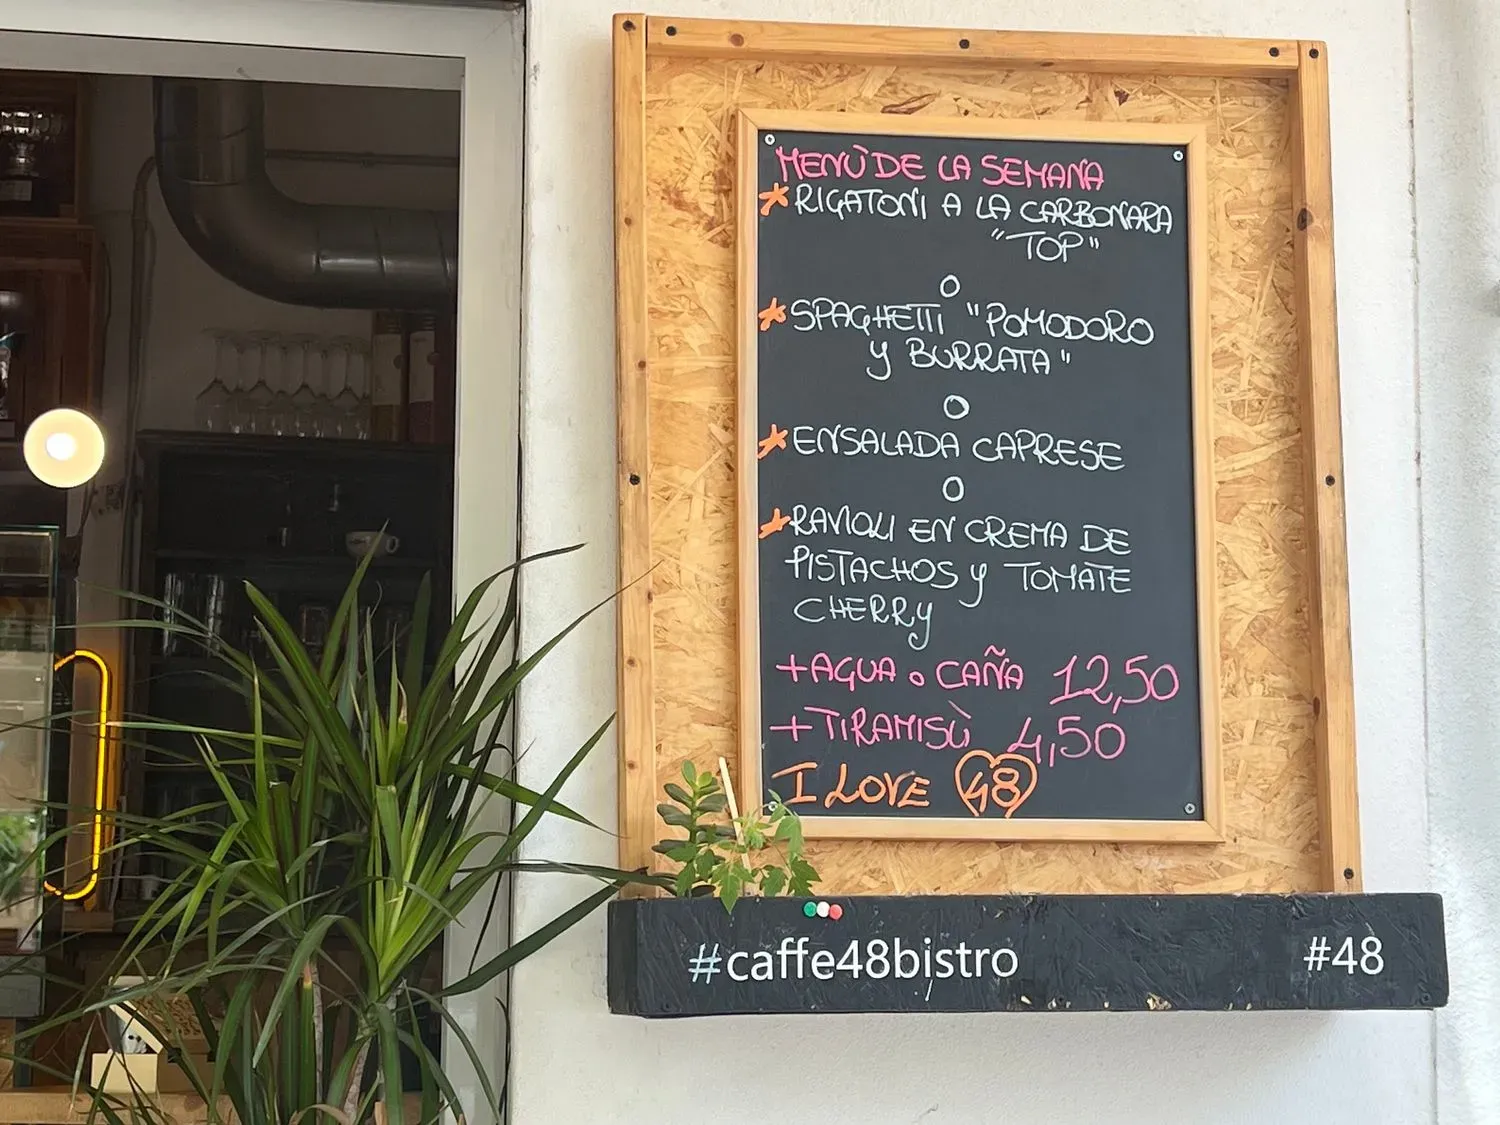 MENÙ DE LA SEMANA
* RIGATONI A LA CARBONARA
"TOP"
O
* SPAGHETTI "POMODORO
y BURRATA"
O
* ENSALADA CAPRESE
O
* RAVIOLI EN CREMA DE
PISTACHOS y TOMATE
CHERRY
+AGUA o CAÑA 12,50
+TIRAMISÙ 4,50
I LOVE 48
#caffe48bistro #48